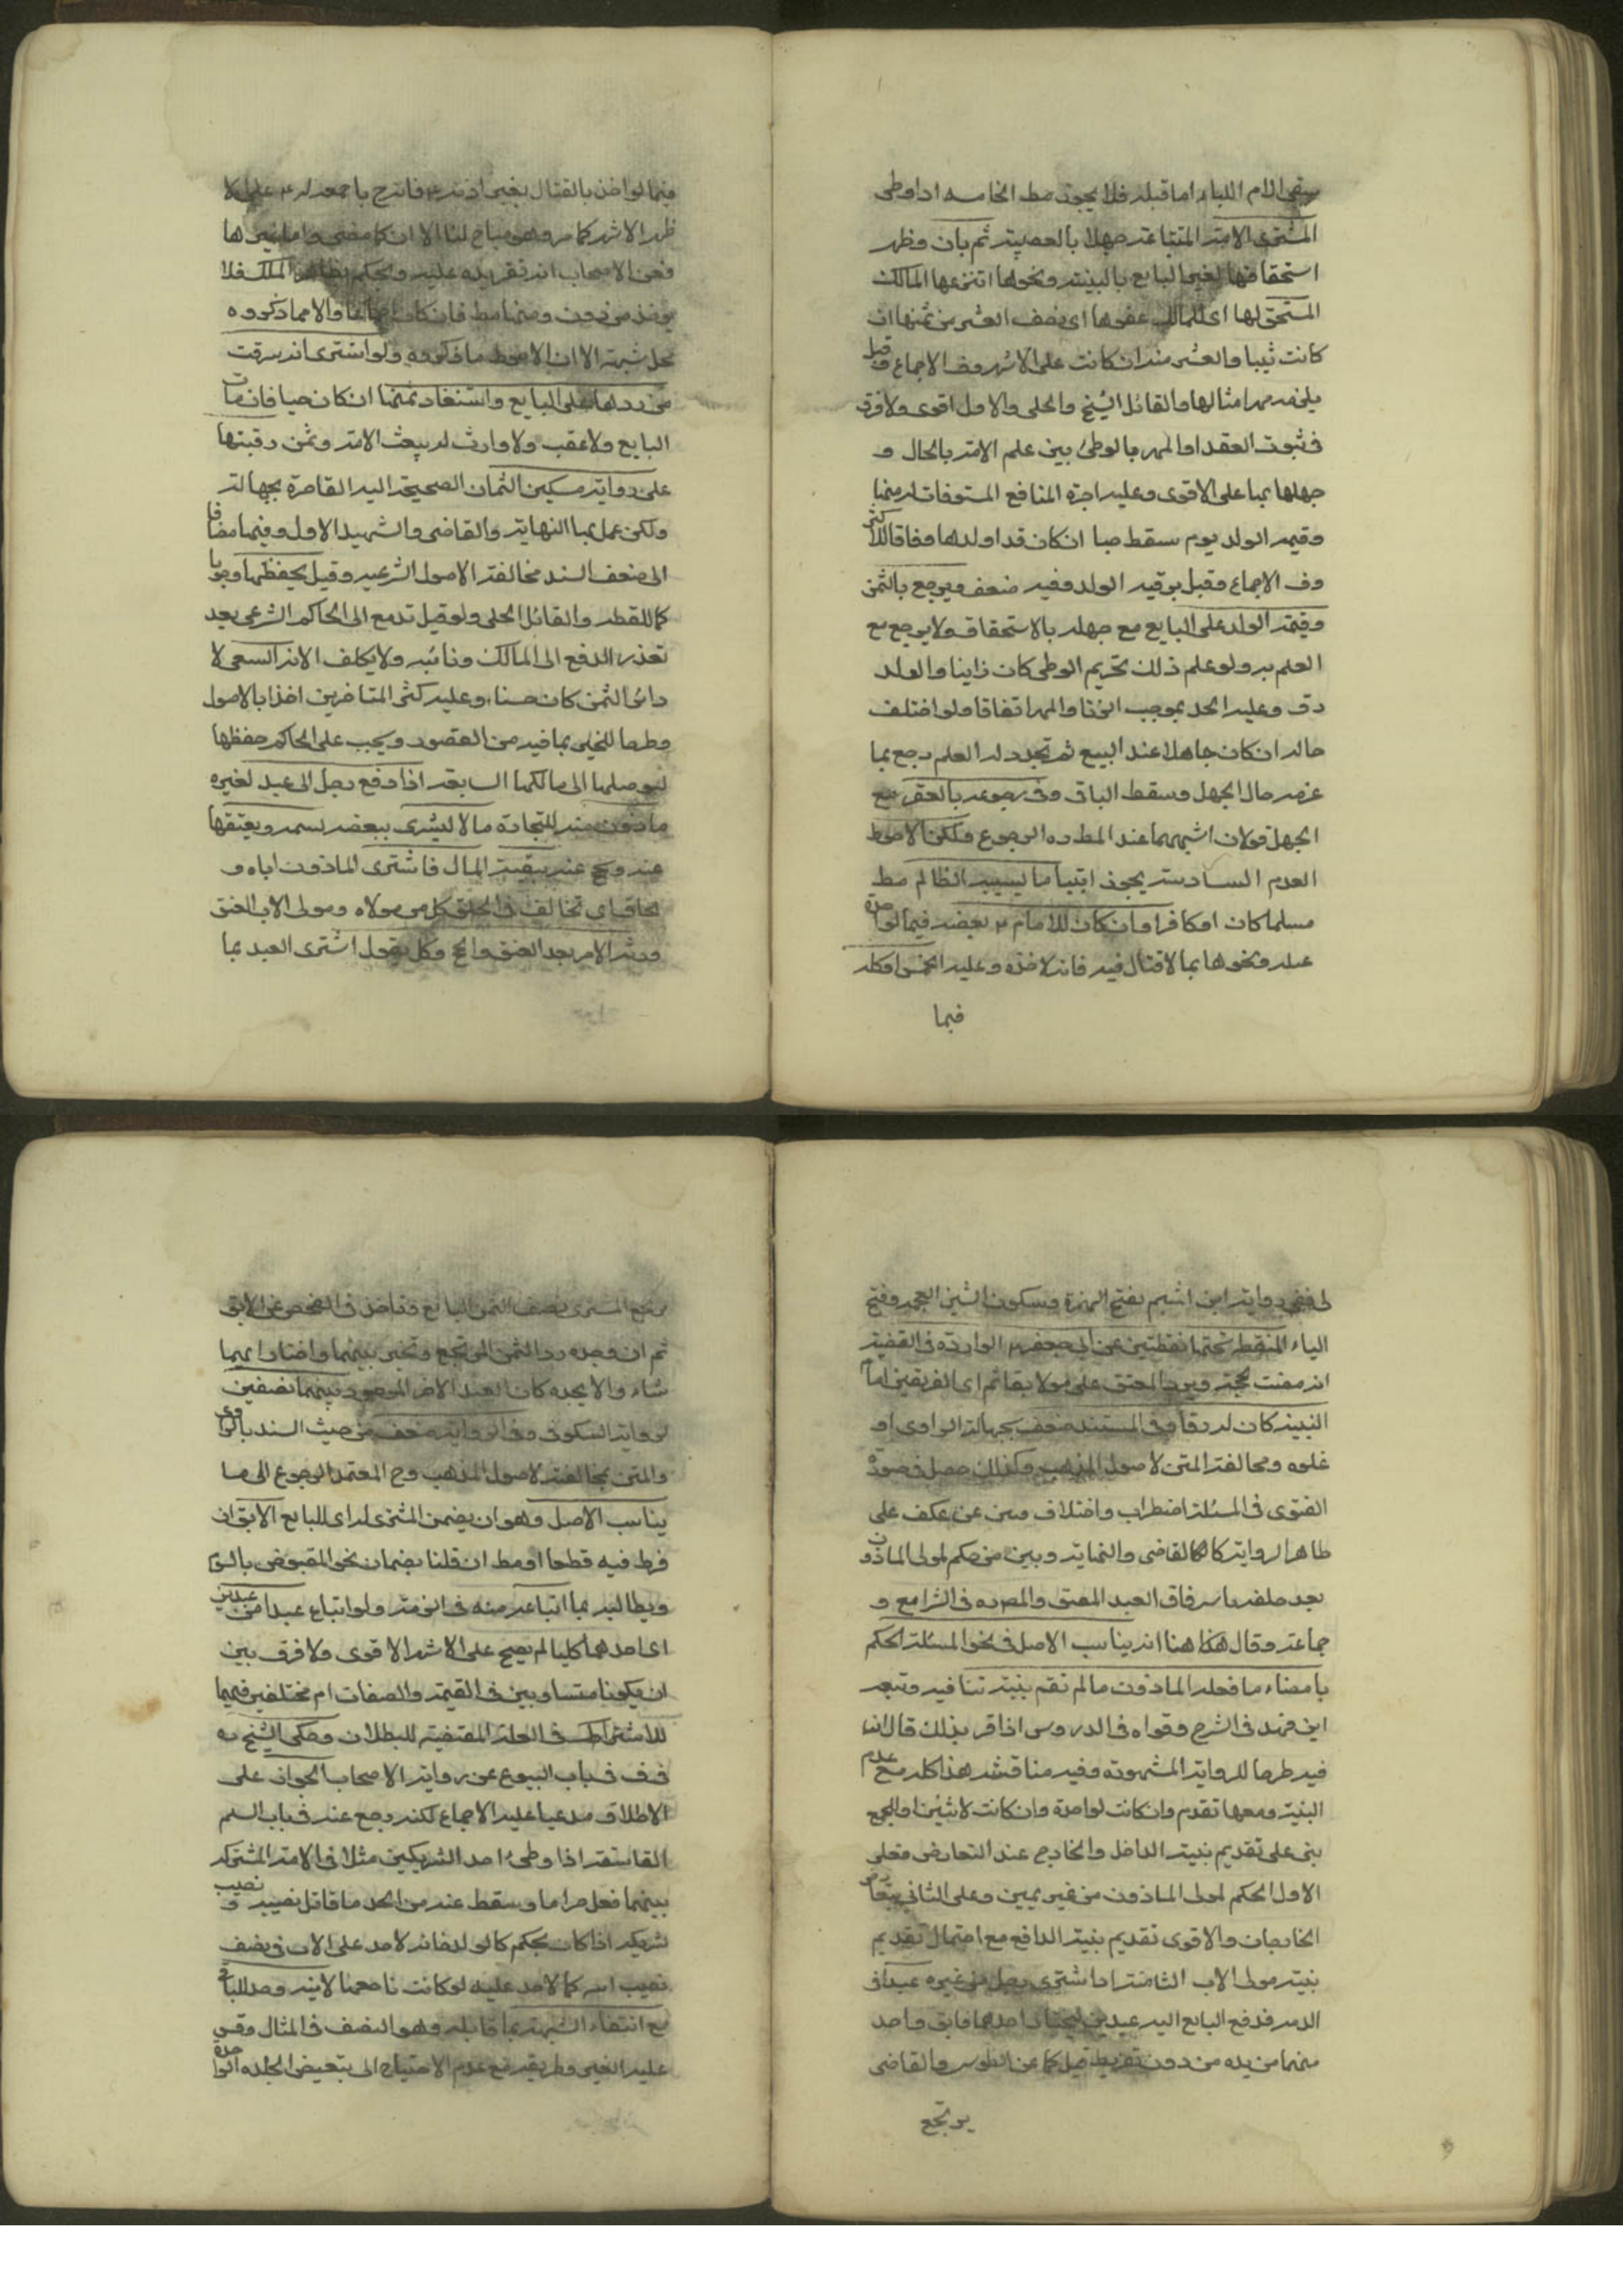 سقي الام اللباء اما قبله فلا يجوز مط الخامسه اذا وطى
المشترى الامة المبتاعة جهلا بالعصبية ثم بان وظهر
استحقاقها لغير البايع بالبينة ونحوها انتزعها المالك
المستحق لها اى للمالك عقرها اى نصف العشر من ثمنها ان
كانت ثيبا والعشر منه ان كانت على الاشهر وف الاجماع وقيل
يلزمه مهر امثالها والقائل الشيخ والحلى والاول اقوى ولا فرق
فى ثبوت العقد او المهر بالوطئ بين علم الامة بالحال و
جهلها بها على الاقوى وعليه اجرة المنافع المستوفات له منها
وقيمة الولد يوم سقط حيا ان كان قد اولدها وفاقا للاكثر
وف الاجماع وقيل برقية الولد وفيه ضعف ويرجع بالثمن
وقيمة الولد على البايع مع جهله بالاستحقاق ولا يرجع مع
العلم به ولو علم ذلك تحريم الوطى كان زانيا والولد
رق وعليه الحد بموجب الزنا والمهر اتفاقا ولو اختلف
حاله ان كان جاهلا عند البيع ثم تجدد له العلم رجع بما
غرمه حال الجهل وسقط الباقى وفى رجوعه بالعقر مع
الجهل قولان اشبههما عند المط ره الرجوع ولكن الاحوط
العدم السادسة يجوز ابتياع ما يسبيه الظالم مط
مسلما كان او كافرا وان كان للامام ع بعضه فيما لو اخذه
غيلة ونحوها بما لا قتال فيه فانه لاخذه وعليه الخمس او كله
فيما
فيما لو اخذ بالقتال بغير اذنه ع فانه ح باجمعه له ع على الا
ظهر الاشهر كما مر وهو مباح لنا الا ان كا مضى واما
فعن الاصحاب انه تقر يده عليه ويحكم بظاهر الملك فلا
يؤخذ من دون ومنها مط فان كان اجماعا والا مما ذكروه
محل شبهة الا ان الاحوط ما ذكروه ولو اشترى انه سرقت
من ردها على البايع واستعاد ثمنها ان كان حيا فان مات
البايع ولا عقب ولا وارث له بيعت الامة وثمن رقبتها
على رواية مسكين السمان الصحيحة اليه القاصرة بجهالته
ولكن عمل بها النهاية والقاضى والشهيد الاول وفيها مضافا
الى ضعف السند مخالفة الاصول الشرعية وقيل يحفظها وجوبا
كاللقطة والقائل الحلى ولو قيل تدفع الى الحاكم الشرعى بعد
تعذر الدفع الى المالك ونائبه ولا يكلف الامة السعى لا
دائ الثمن كان حسنا وعليه كثر المتاخرين اخذا بالاصول
وطرحا للخبر بما فيه من القصور ويجب على الحاكم حفظها
ليوصلها الى مالكها السابعة اذا دفع رجل الى عبد لغيره
ماذون منه للتجارة مالا ليشرى ببعضه نسمة ويعتقها
عنه ويحج عنه ببقية المال فاشترى الماذون اباه و
تحاق اى تخالف فى الحلق كل من مولاه ومولى الاب العتق
وورثة الامر بعد العتق والحج وكل يقول اشترى العبد بما
لى ففى رواية ابن اشيم بفتح الهمزة وسكون الشين المعجمة وفتح
الياء المنقطة تحتها نقطتين عن ابى جعفر ع الواردة فى القضية
انه مضت الحجة ويرد المعتق على مولاه ثم اى الفريقين اقام
البينة كان له رقا وفى المستند ضعف بجهالة الراوى او
غلوه ومخالفة المتن لاصول المذهب وكذلك حصل فى صورة
الفتوى فى المسئلة اضطراب واختلاف فبين عن عكف على
ظاهر الرواية كا كا القاضى والنهاية وبين من حكم لمولى الماذون
بعد حلفه باسرفاق العبد المعتق والمص ره فى الشرايع و
جماعة وقال هنا هذا انه يناسب الاصل فى نحو المسئلة الحكم
بامضاء ما فعله الماذون ما لم تقم بينة تنا فيه وتبعه
ابن فهد فى الشرح وقواه فى الدروس اذا قر بذلك قال لان
فيه طرحا للرواية المشهورة وفيه مناقشة هذا كله مع عدم
البينة ومعها تقدم وان كانت لواحدة وان كانت لاثنين او الجمع
بنى على تقديم بينة الداخل والخارج عند التعارض فعلى
الاول الحكم لمولى الماذون من غير يمين وعلى الثانى يتعارض
الخارجان والاقوى تقديم بينة الدافع مع احتمال تقديم
بينة مولى الاب الثامنة اذا اشترى رجل من غيره عبدا فى
الذمة فدفع البايع اليه عبدين ليختار احدهما فابق واحد
منهما من يده من دون تفريط قيل كما عن الطوسى والقاضى
يرتجع
يرتجع المشترى نصف الثمن البايع وتاخذ فى الفحص عن الابق
ثم ان وجده رد الثمن المرتجع وتخير بينهما واختار ايهما
شاء والا يجده كان العبد الاخر الموجود بينهما نصفين
لرواية السكونى وفى الرواية ضعف من حيث السند بالراوى
والمتن بمخالفته لاصول المذهب وح المعتمد الرجوع الى ما
يناسب الاصل وهو ان يضمن المشترى له اى للبايع الابق ان
فرط فيه قطعا او مط ان قلنا بضمان نحو المقبوض بالسوم
ويطالبه بما ابتاعه منه فى الذمة ولو ابتاع عبدا من عبدين
اى احدهما كليا لم يصح على الاشهر الاقوى ولا فرق بين
ان يكونا متساويين فى القيمة والصفات ام مختلفين فيهما
للاشتراط فى العلة المقتضية للبطلان وحكى الشيخ ره
فى ف فى باب البيوع عن رواية الاصحاب الجواز على
الاطلاق مدعيا عليه الاجماع لكنه رجع عنه فى باب السلم
التاسعة اذا وطئ احد الشريكين مثلا فى الامة المشتركة
بينهما فعل حراما وسقط عنه من الحد ما قابل نصيبه و نصيب
شريكه اذا كان بحكم كالولد فانه لا حد على الاب فى نصف
نصيب ابنه كما لا حد عليه لو كانت باجمعها لابنه وحد للباقى
مع انتفاء الشبهة بما قابله وهو النصف فى المثال وقس
عليه الغير وطريقه مع عدم الاحتياج الى تبعيض الجلدة الواحدة